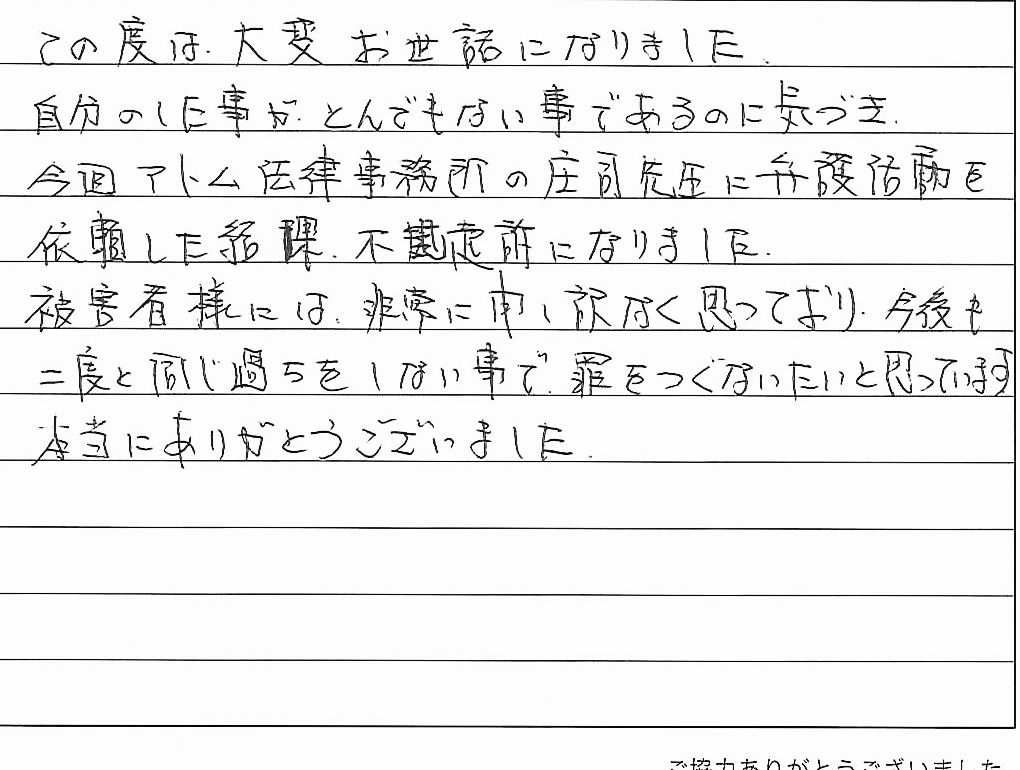 この度は、大変お世話になりました。
自分のした事が、とんでもない事であるのに気づき、
今回アトム法律事務所の庄司先生に弁護活動を
依頼した結果、不起訴になりました。
被害者様には、非常に申し訳なく思っており、今後も
二度と同じ過ちをしない事で、罪をつぐないたいと思っています
本当にありがとうございました。
ご協力ありがとうございました